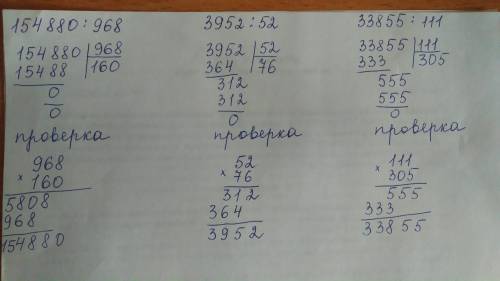 154880 : 968
154880 968
15488 160
0
0
проверка
968
× 160
5808
968
154880
3952 : 52
3952 52
364 76
312
312
0
проверка
52
× 76
312
364
3952
33855 : 111
33855 111
333 305
555
555
0
проверка
111
× 305
555
333
33855